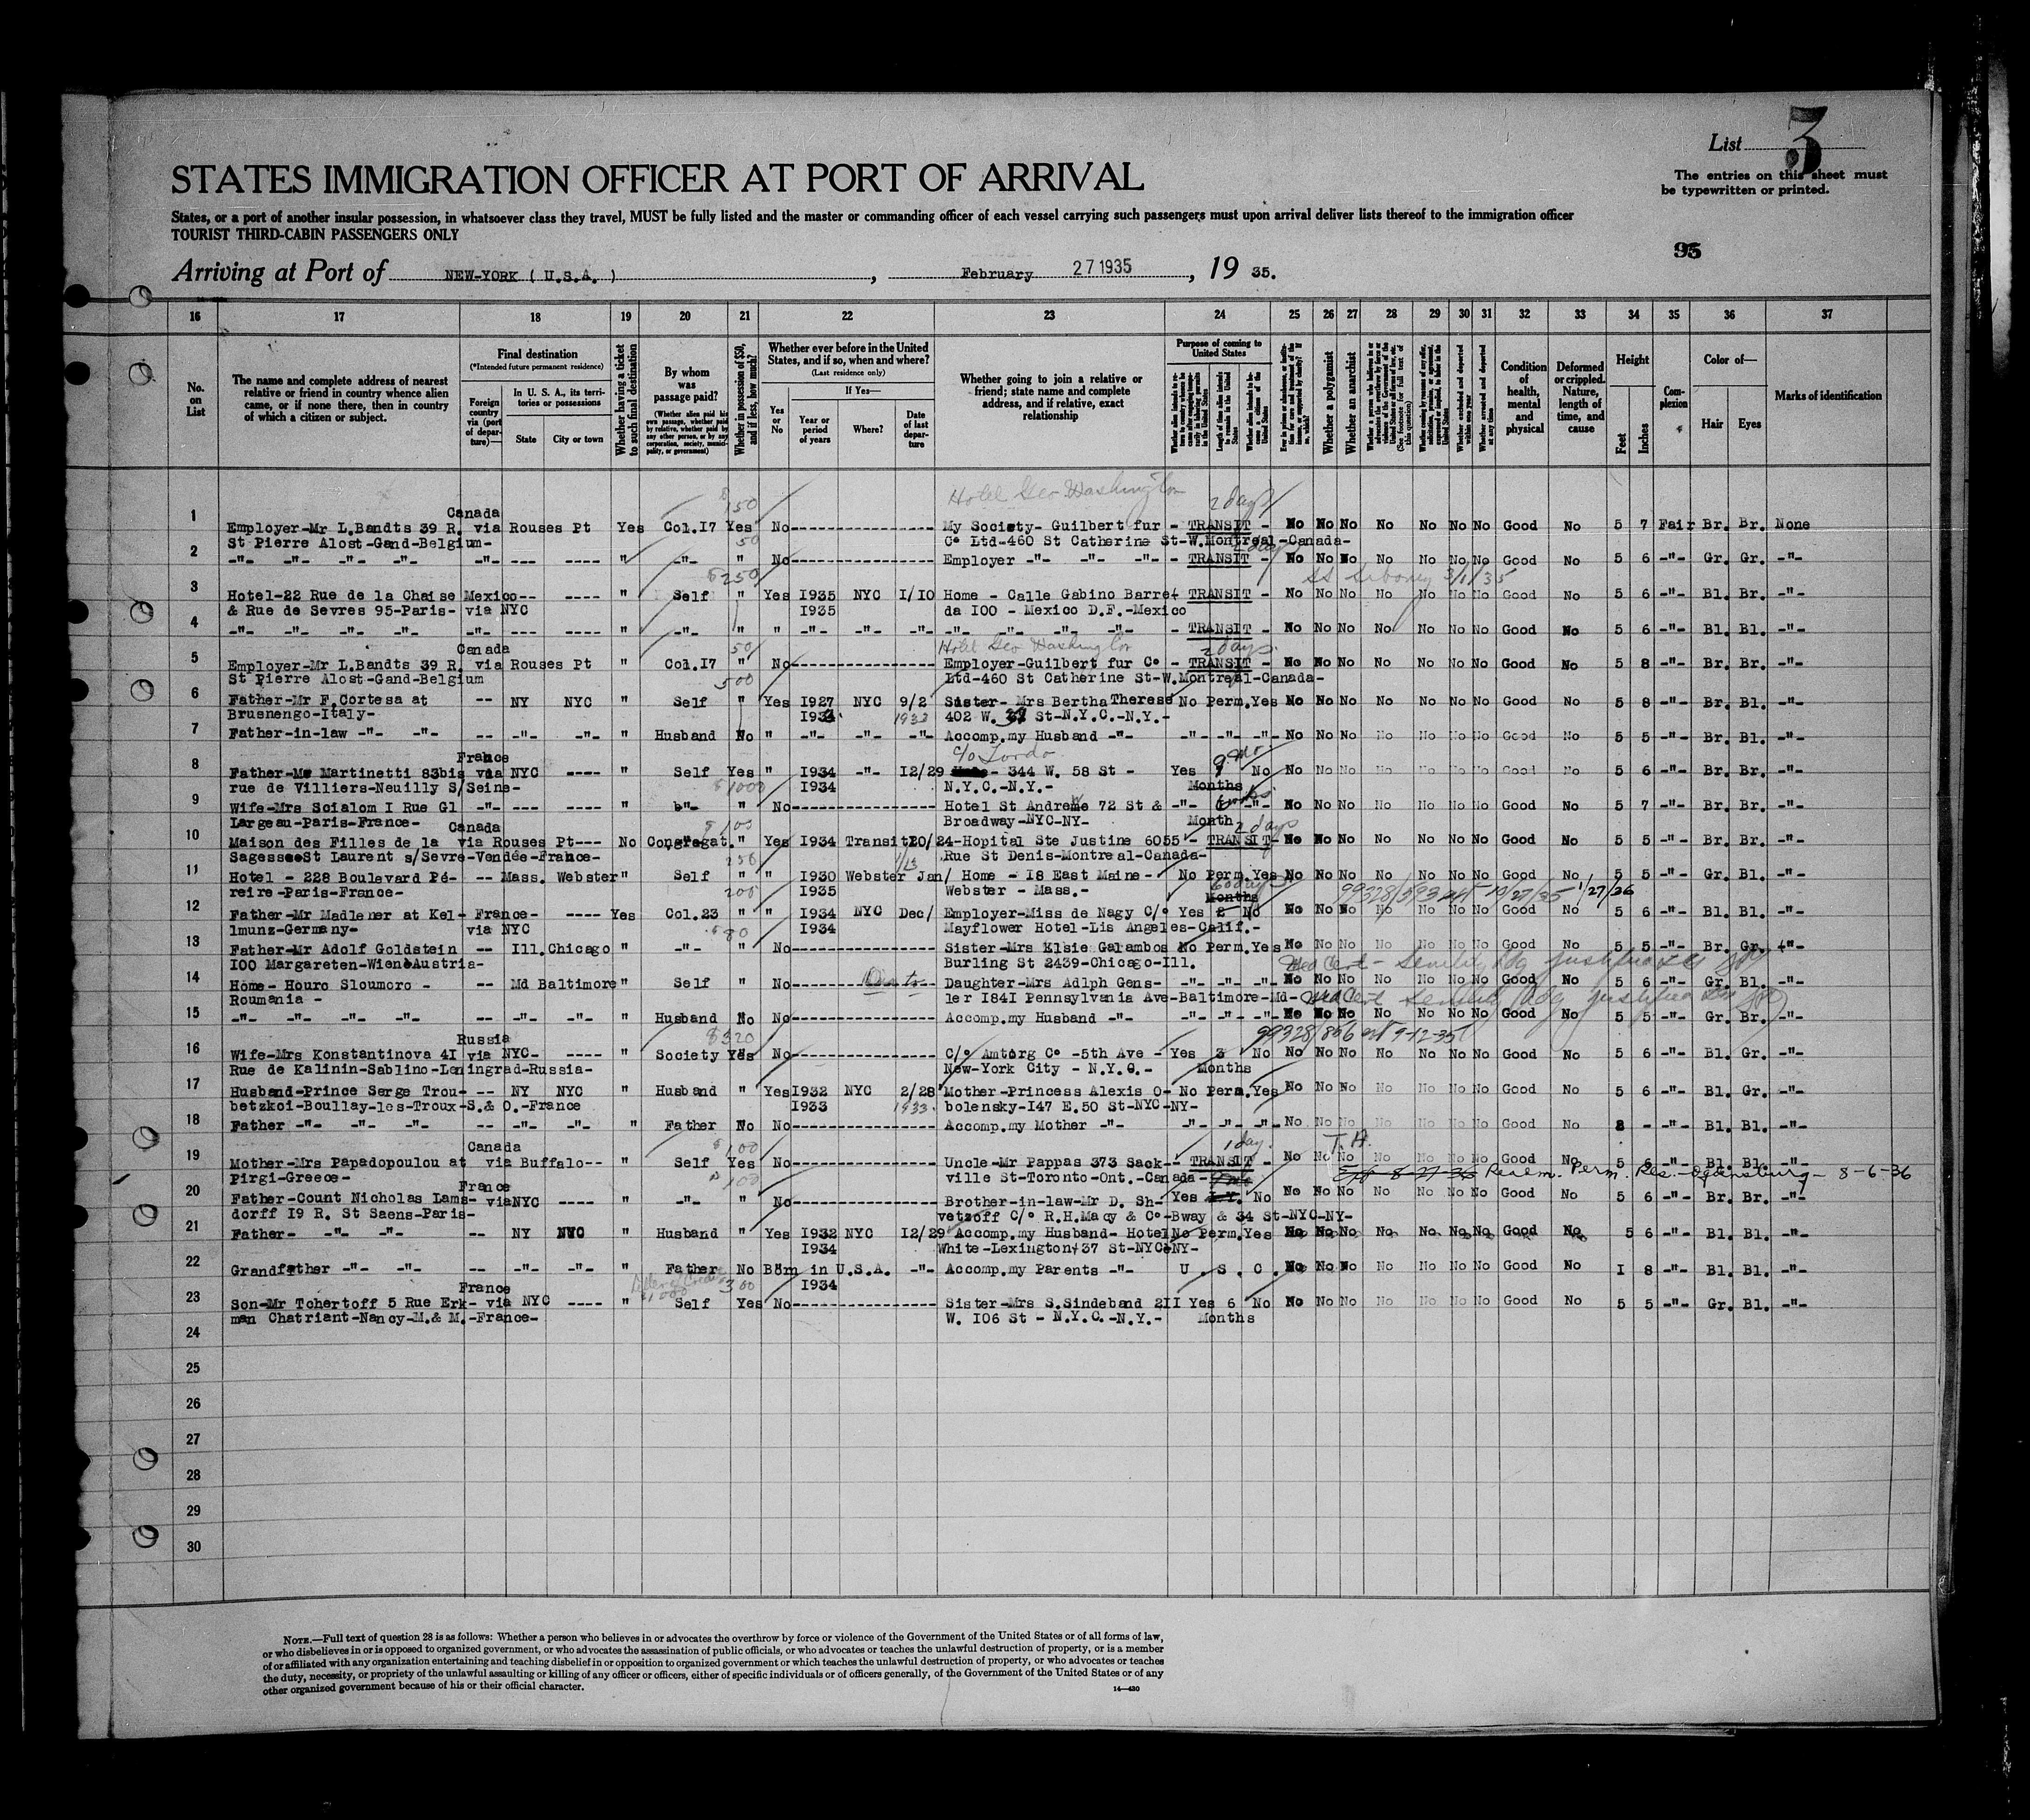 List 3
STATES IMMIGRATION OFFICER AT PORT OF ARRIVAL
The entries on this sheet must
be typewritten or printed.
States, or a port of another insular possession, in whatsoever class they travel, MUST be fully listed and the master or commanding officer of each vessel carrying such passengers must upon arrival deliver lists thereof to the immigration officer
TOURIST THIRD-CABIN PASSENGERS ONLY
95
Arriving at Port of NEW-YORK ( U.S.A. ) , February 27 1935 , 19 35.
16 17 18 19 20 21 22 23 24 25 26 27 28 29 30 31 32 33 34 35 36 37
No. on List
The name and complete address of nearest relative or friend in country whence alien came, or if none there, then in country of which a citizen or subject.
Final destination
(*Intended future permanent residence)
Foreign country via (port of departure)—
In U. S. A., its territories or possessions
State
City or town
Whether having a ticket to such final destination
By whom was passage paid?
(Whether alien paid his own passage, whether paid by relative, whether paid by any other person, or by any corporation, society, municipality, or government)
Whether in possession of $50, and if less, how much?
Whether ever before in the United States, and if so, when and where?
(Last residence only)
Yes or No
If Yes—
Year or period of years
Where?
Date of last departure
Whether going to join a relative or friend; state name and complete address, and if relative, exact relationship
Purpose of coming to United States
Whether a polygamist
Whether an anarchist
Whether excluded and deported within one year
Whether arrested and deported at any time
Condition of health, mental and physical
Deformed or crippled. Nature, length of time, and cause
Height
Feet
Inches
Complexion
Color of—
Hair
Eyes
Marks of identification
Hotel Geo Washington 2 days
150
Canada
1 Employer-Mr L.Bandts 39 R. via Rouses Pt Yes Col.I7 Yes No--- My Society- Guilbert fur - TRANSIT - No No No No No No No Good No 5 7 Fair Br. Br. None
St Pierre Alost-Gand-Belgium- 50 C° Ltd-460 St Catherine St-W.Montreal-Canada-
2 -"- -"- -"- -"- -"- --- ---- " -"- " No--- Employer -"- -"- -"- TRANSIT - No No No No No No No Good No 5 6 -"- Gr. Gr. -"-
$250 SS Siboney 3/1/35
3 Hotel-22 Rue de la Chaise Mexico-- ---- " Self " Yes I935 NYC I/I0 Home - Calle Gabino Barre- TRANSIT - No No No No No No No Good No 5 6 -"- Bl. Br. -"-
& Rue de Sevres 95-Paris- via NYC I935 da I00 - Mexico D.F.-Mexico
4 -"- -"- -"- -"- -"- --- ---- " -"- " " -"- -"- -"- -"- -"- -"- -"- - TRANSIT - No No No No No No No Good No 5 6 -"- Bl. Bl. -"-
Canada 50 Hotel Geo Washington 2 days
5 Employer-Mr L.Bandts 39 R. via Rouses Pt " Col.I7 " No--- Employer-Guilbert fur C° - TRANSIT - No No No No No No No Good No 5 8 -"- Br. Br. -"-
St Pierre Alost-Gand-Belgium 500 Ltd-460 St Catherine St-W.Montreal-Canada-
6 Father-Mr F.Cortesa at -- NY NYC " Self " Yes I927 NYC 9/2 Sister- Mrs Bertha Therese No Perm.Yes No No No No No No No Good No 5 8 -"- Br. Bl. -"-
Brusnengo-Italy- 402 W. St-N.Y.C.-N.Y.-
7 Father-in-law -"- -"- -- -"- -"- " Husband No " -"- -"- -"- Accomp.my Husband -"- -"- -"- -"- No No No No No No No Good No 5 5 -"- Br. Bl. -"-
France
8 Father-Mr Martinetti 83bis via NYC ---- " Self Yes " I934 -"- I2/29 344 W. 58 St - Yes 9 No No No No No No No No Good No 5 6 -"- Br. Br. -"-
rue de Villiers-Neuilly S/Seine- $1000 I934 N.Y.C.-N.Y.- Months
9 Wife-Mrs Scialom I Rue Gl -"- ---- ---- " -"- " No--- Hotel St Andrew 72 St & -"- -"- No No No No No No No Good No 5 7 -"- Br. Br. -"-
Largeau-Paris-France- Canada $100 Broadway-NYC-NY- Month 2 days
10 Maison des Filles de la via Rouses Pt--- No Congregat." Yes I934 Transit I0/24-Hopital Ste Justine 6055 - TRANSIT- No No No No No No No Good No 5 5 -"- Br. Br. -"-
Sagesse-St Laurent s/Sevre-Vendée-France- 250 Rue St Denis-Montreal-Canada-
11 Hotel - 228 Boulevard Pé- -- Mass. Webster" Self " " I930 Webster Jan/ Home - I8 East Maine - No Perm.Yes No No No No No No No Good No 5 5 -"- Gr. Bl. -"-
reire-Paris-France- 200 I935 Webster - Mass.- 60 days 1/27/36
12 Father-Mr Madlener at Kel- France- ---- Yes Col.23 " " I934 NYC Dec/ Employer-Miss de Nagy C/° Yes 2 No No No No No No No No Good No 5 6 -"- Bl. Bl. -"-
lmunz-Germany- via NYC $80 I934 Mayflower Hotel-Lis Angeles-Calif.-
13 Father-Mr Adolf Goldstein -- Ill.Chicago " -"- " No--- Sister-Mrs Elsie Galambos No Perm.Yes No No No No No No No Good No 5 5 -"- Br. Gr. -"-
I00 Margareten-Wien-Austria- Burling St 2439-Chicago-Ill. Med Cert - Senility
14 Home- Houro Sloumoro - -- Md Baltimore" Self " No--- Daughter-Mrs Adlph Gens- -"- -"- -"- No No No No No No No Good No 5 6 -"- Gr. Bl. -"-
Roumania - ler I84I Pennsylvania Ave-Baltimore-Md- Med Cert Senility
15 -"- -"- -"- -"- -- -"- -"- " Husband No No--- Accomp.my Husband -"- -"- -"- -"- No No No No No No No Good No 5 5 -"- Gr. Br. -"-
Russia $320 99328/806 9-12-35
16 Wife-Mrs Konstantinova 4I via NYC- ---- " Society Yes No--- C/° Amtorg C° -5th Ave - Yes 3 No No No No No No No No Good No 5 6 -"- Bl. Gr. -"-
Rue de Kalinin-Sablino-Leningrad-Russia- New-York City - N.Y.C.- Months
17 Husband-Prince Serge Trou- -- NY NYC " Husband " Yes I932 NYC 2/28 Mother-Princess Alexis O- No Perm.Yes No No No No No No No Good No 5 6 -"- Bl. Gr. -"-
betzkoi-Boullay-les-Troux-S.& O.-France I933 1933 bolensky-I47 E.50 St-NYC-NY-
18 Father -"- -"- -"- -- -"- -"- " Father No No--- Accomp.my Mother -"- -"- -"- -"- No No No No No No No Good No 2 - -"- Bl. Bl. -"-
Canada $100 1 day. T.H.
19 Mother-Mrs Papadopoulou at via Buffalo-- " Self Yes No--- Uncle-Mr Pappas 373 Sack-- TRANSIT - No No No No No No No Good No 5 6 -"- Bl. Bl. -"-
Pirgi-Greece- France 100 ville St-Toronto-Ont.-Canada- Readm. Perm. Res.-Ogdensburg- 8-6-36
20 Father-Count Nicholas Lams- via NYC ---- " -"- " No--- Brother-in-law-Mr D. Sh- Yes No No No No No No No No Good No 5 6 -"- Br. Br. -"-
dorff I9 R. St Saens-Paris- vetzoff C/° R.H.Macy & C°-Bway & 34 St-NYC-NY-
21 Father- -"- -"- -- NY NYC " Husband " Yes I932 NYC I2/29 Accomp.my Husband- Hotel No Perm.Yes No No No No No No No Good No 5 6 -"- Bl. Bl. -"-
I934 White-Lexington+37 St-NYC-NY-
22 Grandfather -"- -"- -- -"- -"- " Father No Born in U.S.A. -"- Accomp.my Parents -"- U . S . C . No No No No No No No Good No I 8 -"- Bl. Bl. -"-
France 300 I934
23 Son-Mr Tchertoff 5 Rue Erk- via NYC ---- " Self Yes No--- Sister-Mrs S.Sindeband 2II Yes 6 No No No No No No No No Good No 5 5 -"- Gr. Bl. -"-
man Chatriant-Nancy-M.& M.-France- W. I06 St - N.Y.C.-N.Y.- Months
24
25
26
27
28
29
30
NOTE.—Full text of question 28 is as follows: Whether a person who believes in or advocates the overthrow by force or violence of the Government of the United States or of all forms of law,
or who disbelieves in or is opposed to organized government, or who advocates the assassination of public officials, or who advocates or teaches the unlawful destruction of property, or is a member
of or affiliated with any organization entertaining and teaching disbelief in or opposition to organized government or which teaches the unlawful destruction of property, or who advocates or teaches
the duty, necessity, or propriety of the unlawful assaulting or killing of any officer or officers, either of specific individuals or of officers generally, of the Government of the United States or of any
other organized government because of his or their official character.
14—430